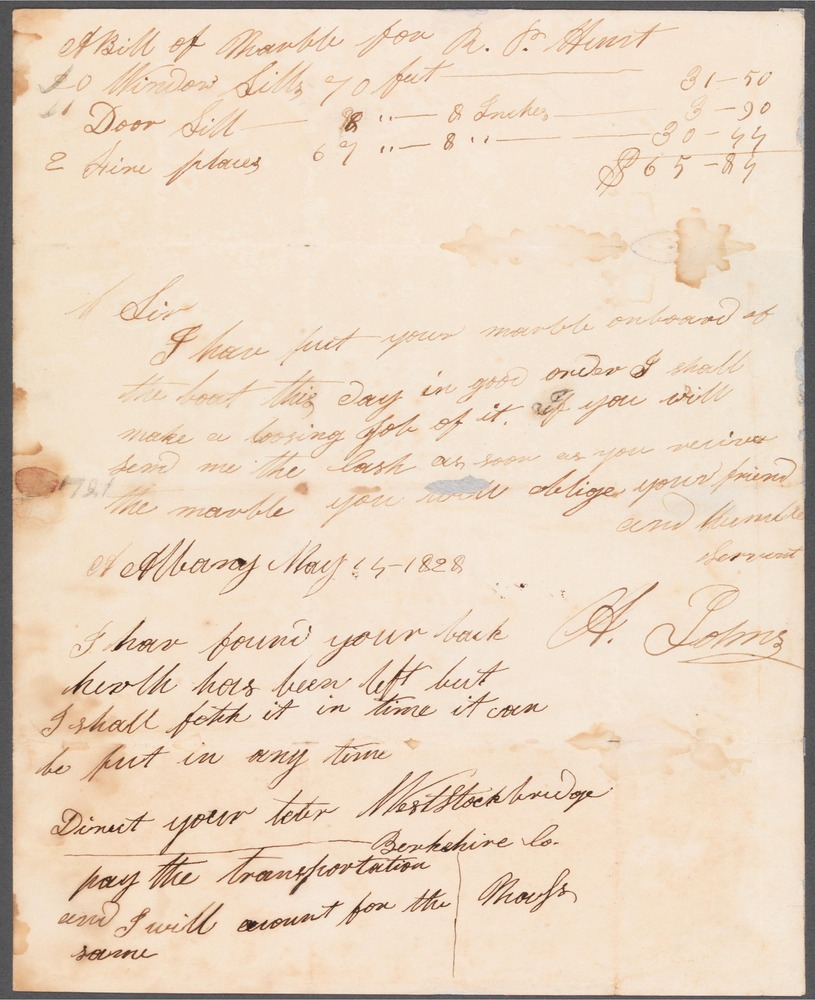 A Bill of Marble for R. P. Hurst
20 Window Sills 70 feet 31-50
11 Door Sill 8 " 8 Inches 3-90
2 Fire places 67 " 8 " 30-44
$65-84
Sir
I have put your marble onboard of
the boat this day in good order I shall
make a loosing Job of it. if you will
send me the Cash as soon as you recive
the marble you will oblige your friend
and Humble
Servent
Albany May 14-1828
H. Johns
I hav found your back
herth has been left but
I shall fetch it in time it can
be put in any time
Direct your leter West Stockbridge
Berkshire Co.
Mass
pay the transportation
and I will acount for the
same